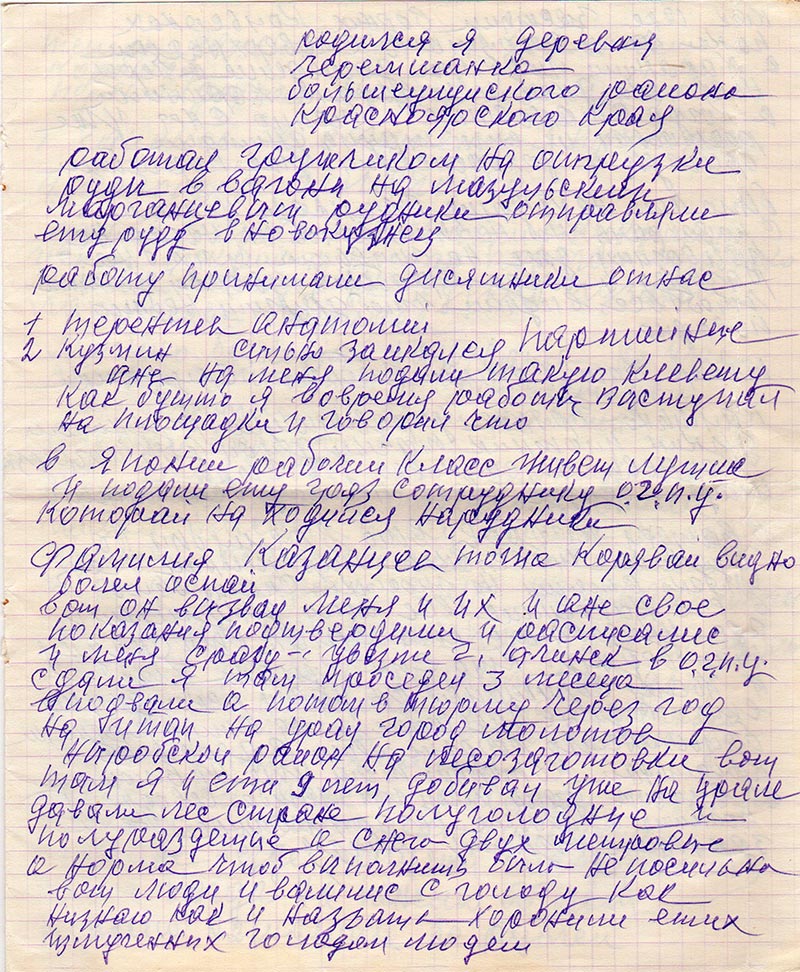 родился я деревня
Черемшанка
большеулуйского района
Красноярского Края
работая грущиком на отгрузки
руды в вагоны на мазульским
марганцевым рудники отправляли
ету руду в новокузнец
работу принимали дисятники отнас
1 терентев анатолий
2 Кузмин сильно заикался партийные
ане на меня подали такую клевету
Как бутто я вовремя работы выступал
на площадки и говорил что
в японии рабочий класс живет лутше
и подали ету грязь сотруднику о.г.п.у.
Которай на ходился нарудники
Фамилия Казанцев тогна Корявай видно
болел оспай
вот он визвал меня и их и ане свое
показания подтвердили и расписалис
и меня сразу увезти г. ачинск в о.г.п.у.
сдали я там проседел 3 месеца
в подвали а потом в тюрму через год
на итап на урал город молотов
ныробский район на лесозаготовки вот
там я и ети 9 лет добивал уже на урале
давали лес стране полуголодные и
полураздетые а снег двух метровые
а норма чтоб выполнить было не посильна
вот люди и валилис с голоду как
низнаю как и назвать хоронили етих
измученных голодом людей